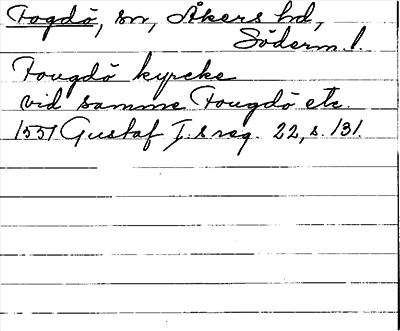 Fogdö, sn, Åkers hd,
Söderm. l.
Fougdö kyrcke
vid samme Fougdö etc.
1551 Gustaf I.s reg. 22, s. 131.